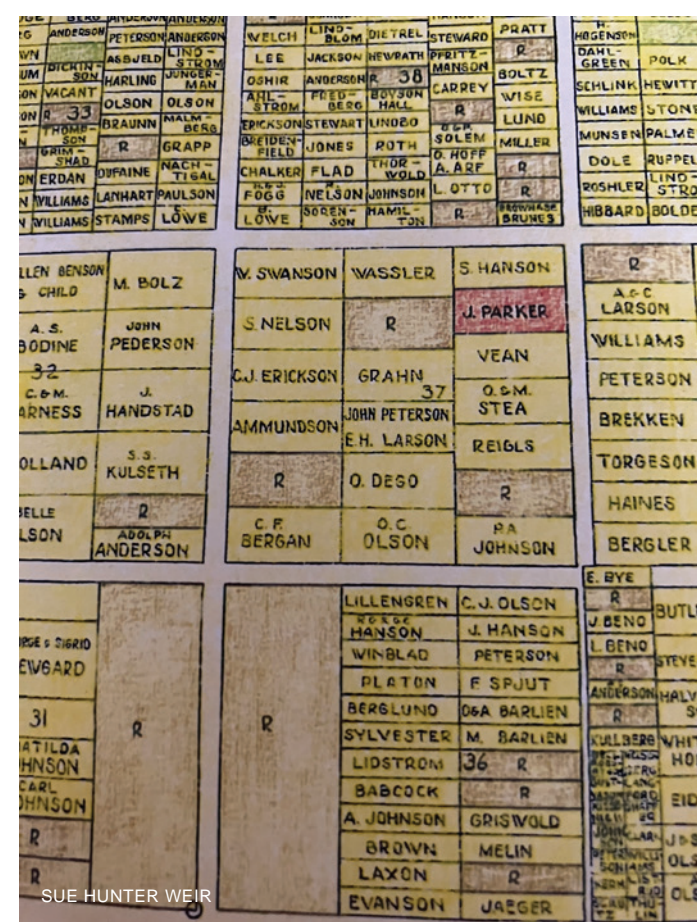 ANDERSON
PETERSON
ANDERSON
ASBJELD
LIND-
STROM
DICKIN-
SON
HARLING
JUNGER-
MAN
VACANT
OLSON
OLSON
R 33
BRAUNN
MALM-
BERG
THOMP-
SON
R
GRAPP
GRIM-
SHAD
ERDAN
DUFAINE
NACH-
TIGAL
WILLIAMS
LANHART
PAULSON
WILLIAMS
STAMPS
LÖWE
WELCH
LIND-
BLOM
DIETREL
STEWARD
PRATT
LEE
JACKSON
NEWRATH
PFRITZ-
MANSON
R
OSHIR
ANDERSON
R 38
BOLTZ
AHL-
STROM
FRED-
BERG
BOYSON
HALL
CARREY
WISE
ERICKSON
STEWART
LINDBO
R
LUND
BREIDEN-
FIELD
JONES
ROTH
SOLEM
MILLER
CHALKER
FLAD
THOR-
WOLD
O. HOFF
A. ARF
R
FOGG
NELSON
JOHNSON
L. OTTO
R
LOWE
SOREN-
SON
HAMIL-
TON
R
BRUNES
H.
HOGENSON
DAHL-
GREEN
POLK
SCHLINK
HEWITT
WILLIAMS
STON
MUNSEN
PALME
DOLE
RUPPEL
ROSHLER
LIND-
STRO
HIBBARD
BOLDE
LLEN BENSON
& CHILD
M. BOLZ
A. S.
BODINE
JOHN
PEDERSON
32
C. & M.
ARNESS
J.
HANDSTAD
OLLAND
S.S.
KULSETH
BELLE
LSON
R
ADOLPH
ANDERSON
W. SWANSON
WASSLER
S. HANSON
S. NELSON
R
J. PARKER
VEAN
C.J. ERICKSON
GRAHN
37
O. & M.
STEA
AMMUNDSON
JOHN PETERSON
E.H. LARSON
REIGLS
R
O. DEGO
R
C. F.
BERGAN
O.C.
OLSON
P.A.
JOHNSON
R
A & C
LARSON
WILLIAMS
PETERSON
BREKKEN
TORGESON
HAINES
BERGLER
& SIGRID
EWGARD
31
ATILDA
HNSON
CARL
OHNSON
R
R
R
R
LILLENGREN
C. J. OLSON
GEORGE
HANSON
J. HANSON
WINBLAD
PETERSON
PLATON
F. SPJUT
BERGLUND
O&A BARLIEN
SYLVESTER
M. BARLIEN
LIDSTROM
36 R
BABCOCK
R
A. JOHNSON
GRISWOLD
BROWN
MELIN
LAXON
R
EVANSON
JAEGER
E. BYE
R
BUTL
J. BENO
L. BENO
STEVE
R
ANDERSON
HALV
R
KULLBERG
WHIT
HO
EID
OLS
SUE HUNTER WEIR